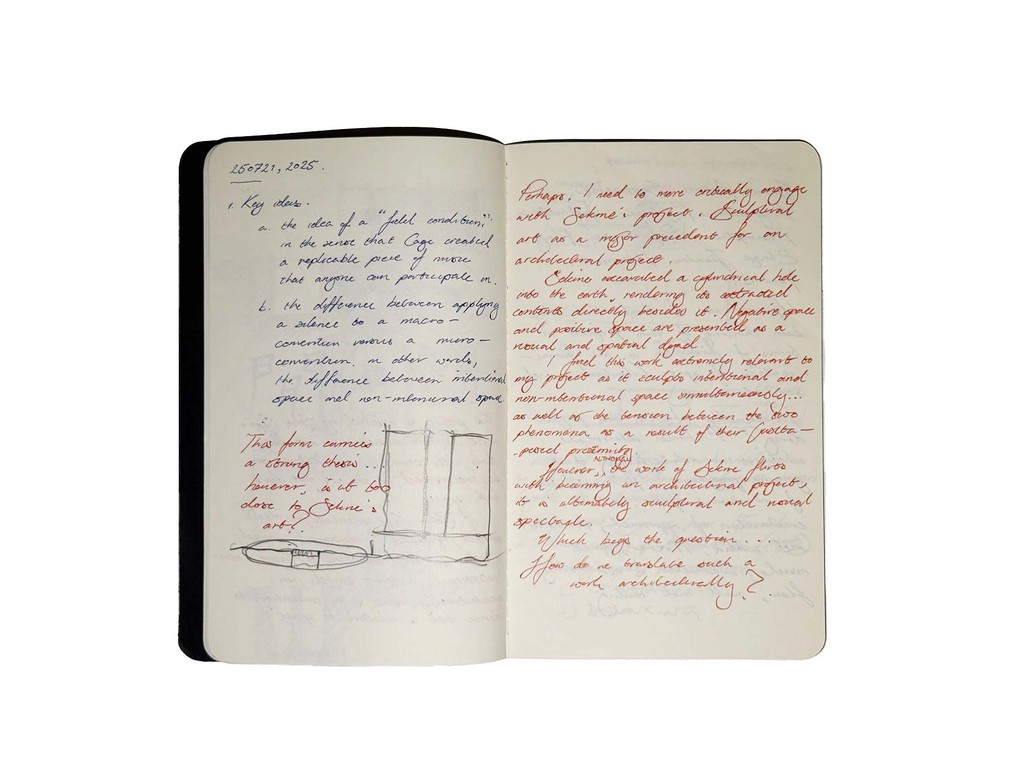 250721, 2025.
1. Key ideas.
a. the idea of a "field condition":
in the sense that Cage created
a replicable piece of music
that anyone can participate in.
b. the difference between applying
a silence to a macro-
convention versus a micro-
convention. in other words,
the difference between intentional
space and non-intentional space
:
This form carries
a strong thesis...
however, is it too
close to Sekine's
art?
Perhaps, I need to more critically engage
with Sekine's project. Sculptural
art as a major precedent for an
architectural project.
Sekine excavated a cylindrical hole
into the earth, rendering its extracted
contents directly besides it. Negative space
and positive space are presented as a
visual and spatial dyad.
I find this work extremely relevant to
my project as it sculpts intentional and
non-intentional space simultaneously...
as well as the tension between the two
phenomena as a result of their juxta-
posed proximity.
ALTHOUGH
However, the work of Sekine flirts
with becoming an architectural project,
it is ultimately sculptural and visual
spectacle.
Which begs the question...
How do we translate such a
work architecturally?